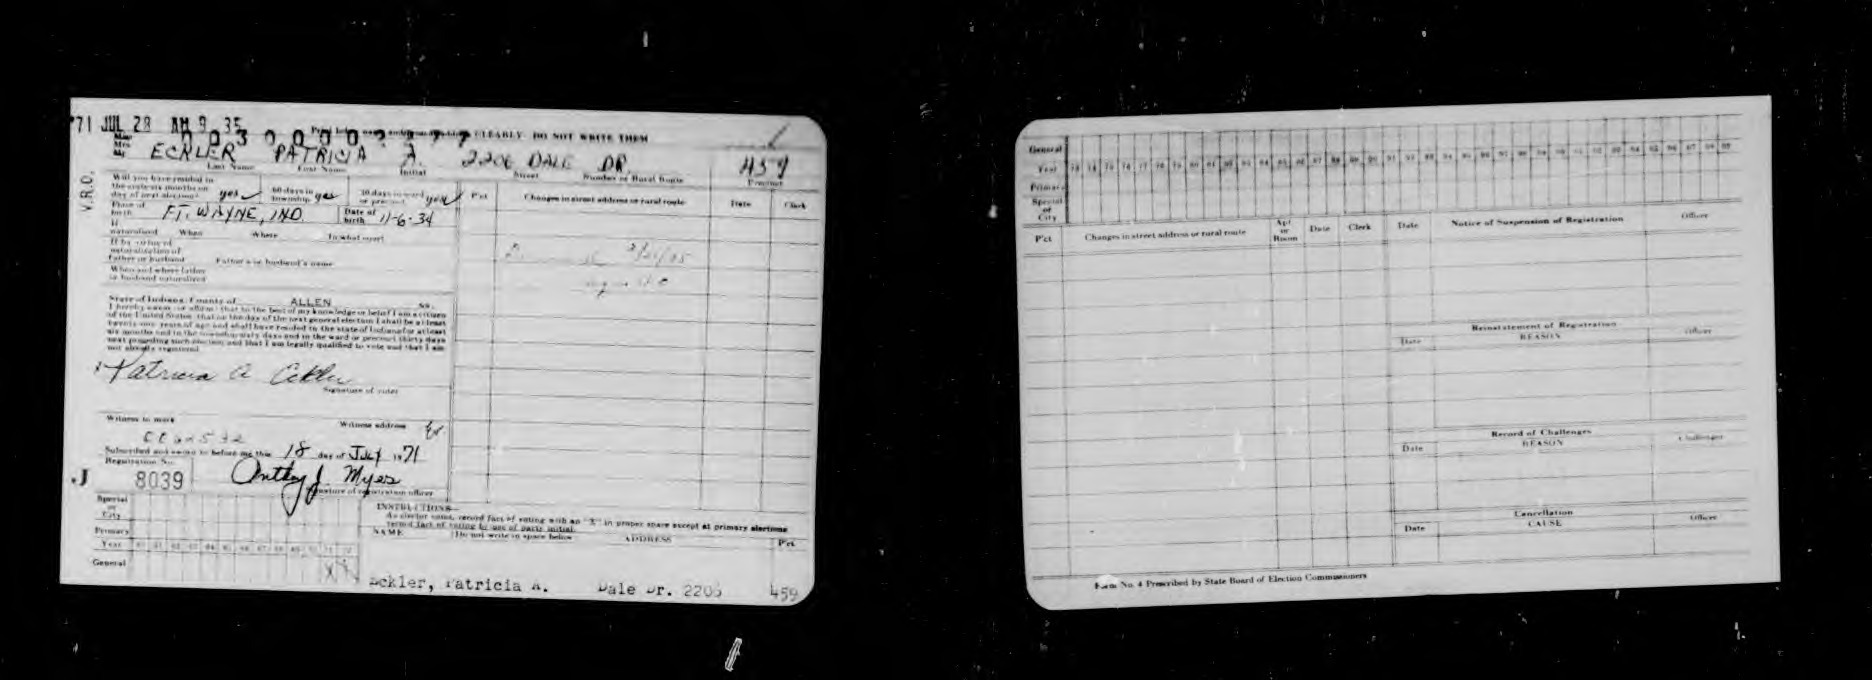 '71 JUL 28 AM 9 35
CLEARLY DO NOT WRITE THEM
V.R.O.
ECKLER PATRICIA A. 2206 DALE DR. 459
Last Name First Name Initial Street Number or Rural Route Precinct
Will you have resided in
the state six months on
day of next election? yes 60 days in township yes 30 days in ward or precinct yes
P'ct Changes in street address or rural route Date Clerk
Place of birth FT. WAYNE, IND Date of birth 11-6-34
If naturalized When Where In what court
If by virtue of
naturalization of
father or husband Father's or husband's name
When and where father
or husband naturalized
State of Indiana, County of ALLEN ss.
I hereby swear (or affirm) that to the best of my knowledge or belief I am a citizen
of the United States, that on the day of the next general election I shall be at least
twenty-one years of age and shall have resided in the state of Indiana for at least
six months and in the township sixty days and in the ward or precinct thirty days
next preceding such election and that I am legally qualified to vote and that I am
not already registered.
X Patricia A Eckler
Signature of voter
Witness to mark Witness address
Subscribed and sworn to before me this 18 day of July 1971
Registration No.
J 8039 Anthony J. Myers
Signature of registration officer
Special
or
City
Primary
Year
General
INSTRUCTIONS—
As elector votes, record fact of voting with an "X" in proper space except at primary elections
record fact of voting by use of party initial.
NAME Do not write in space below ADDRESS P'ct.
Eckler, Patricia A. Dale Dr. 2206 459
General
Year 73 74 75 76 77 78 79 80 81 82 83 84 85 86 87 88 89 90 91 92 93 94 95 96 97 98 99
Primary
Special
or
City
P'ct Changes in street address or rural route Apt or Room Date Clerk Date Notice of Suspension of Registration Officer
Reinstatement of Registration
Date REASON Officer
Record of Challenges
Date REASON Challenger
Cancellation
Date CAUSE Officer
Form No. 4 Prescribed by State Board of Election Commissioners